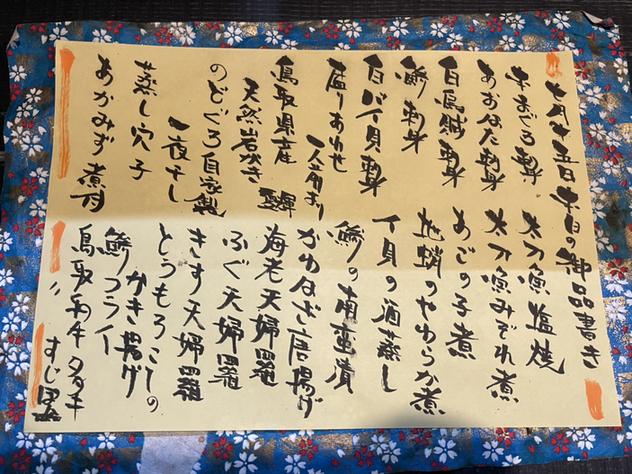 七月十五日 本日の御品書き
本まぐろ 刺身
あおはた刺身
白烏賊 刺身
鯵 刺身
白バイ貝 刺身
盛りあわせ
一人前より
鳥取県産
天然岩がき
のどぐろ自家製
一夜干し
蒸し穴子
あかみず 煮付
太刀魚塩焼
太刀魚みぞれ煮
あごの子煮
地蛸のやわらか煮
イ貝の酒蒸し
鯵の南蛮漬
かわはぎ唐揚げ
海老天婦羅
ふぐ天婦羅
きす天婦羅
とうもろこしの
かき揚げ
鯵フライ
鳥取和牛タタキ
〃 すじ